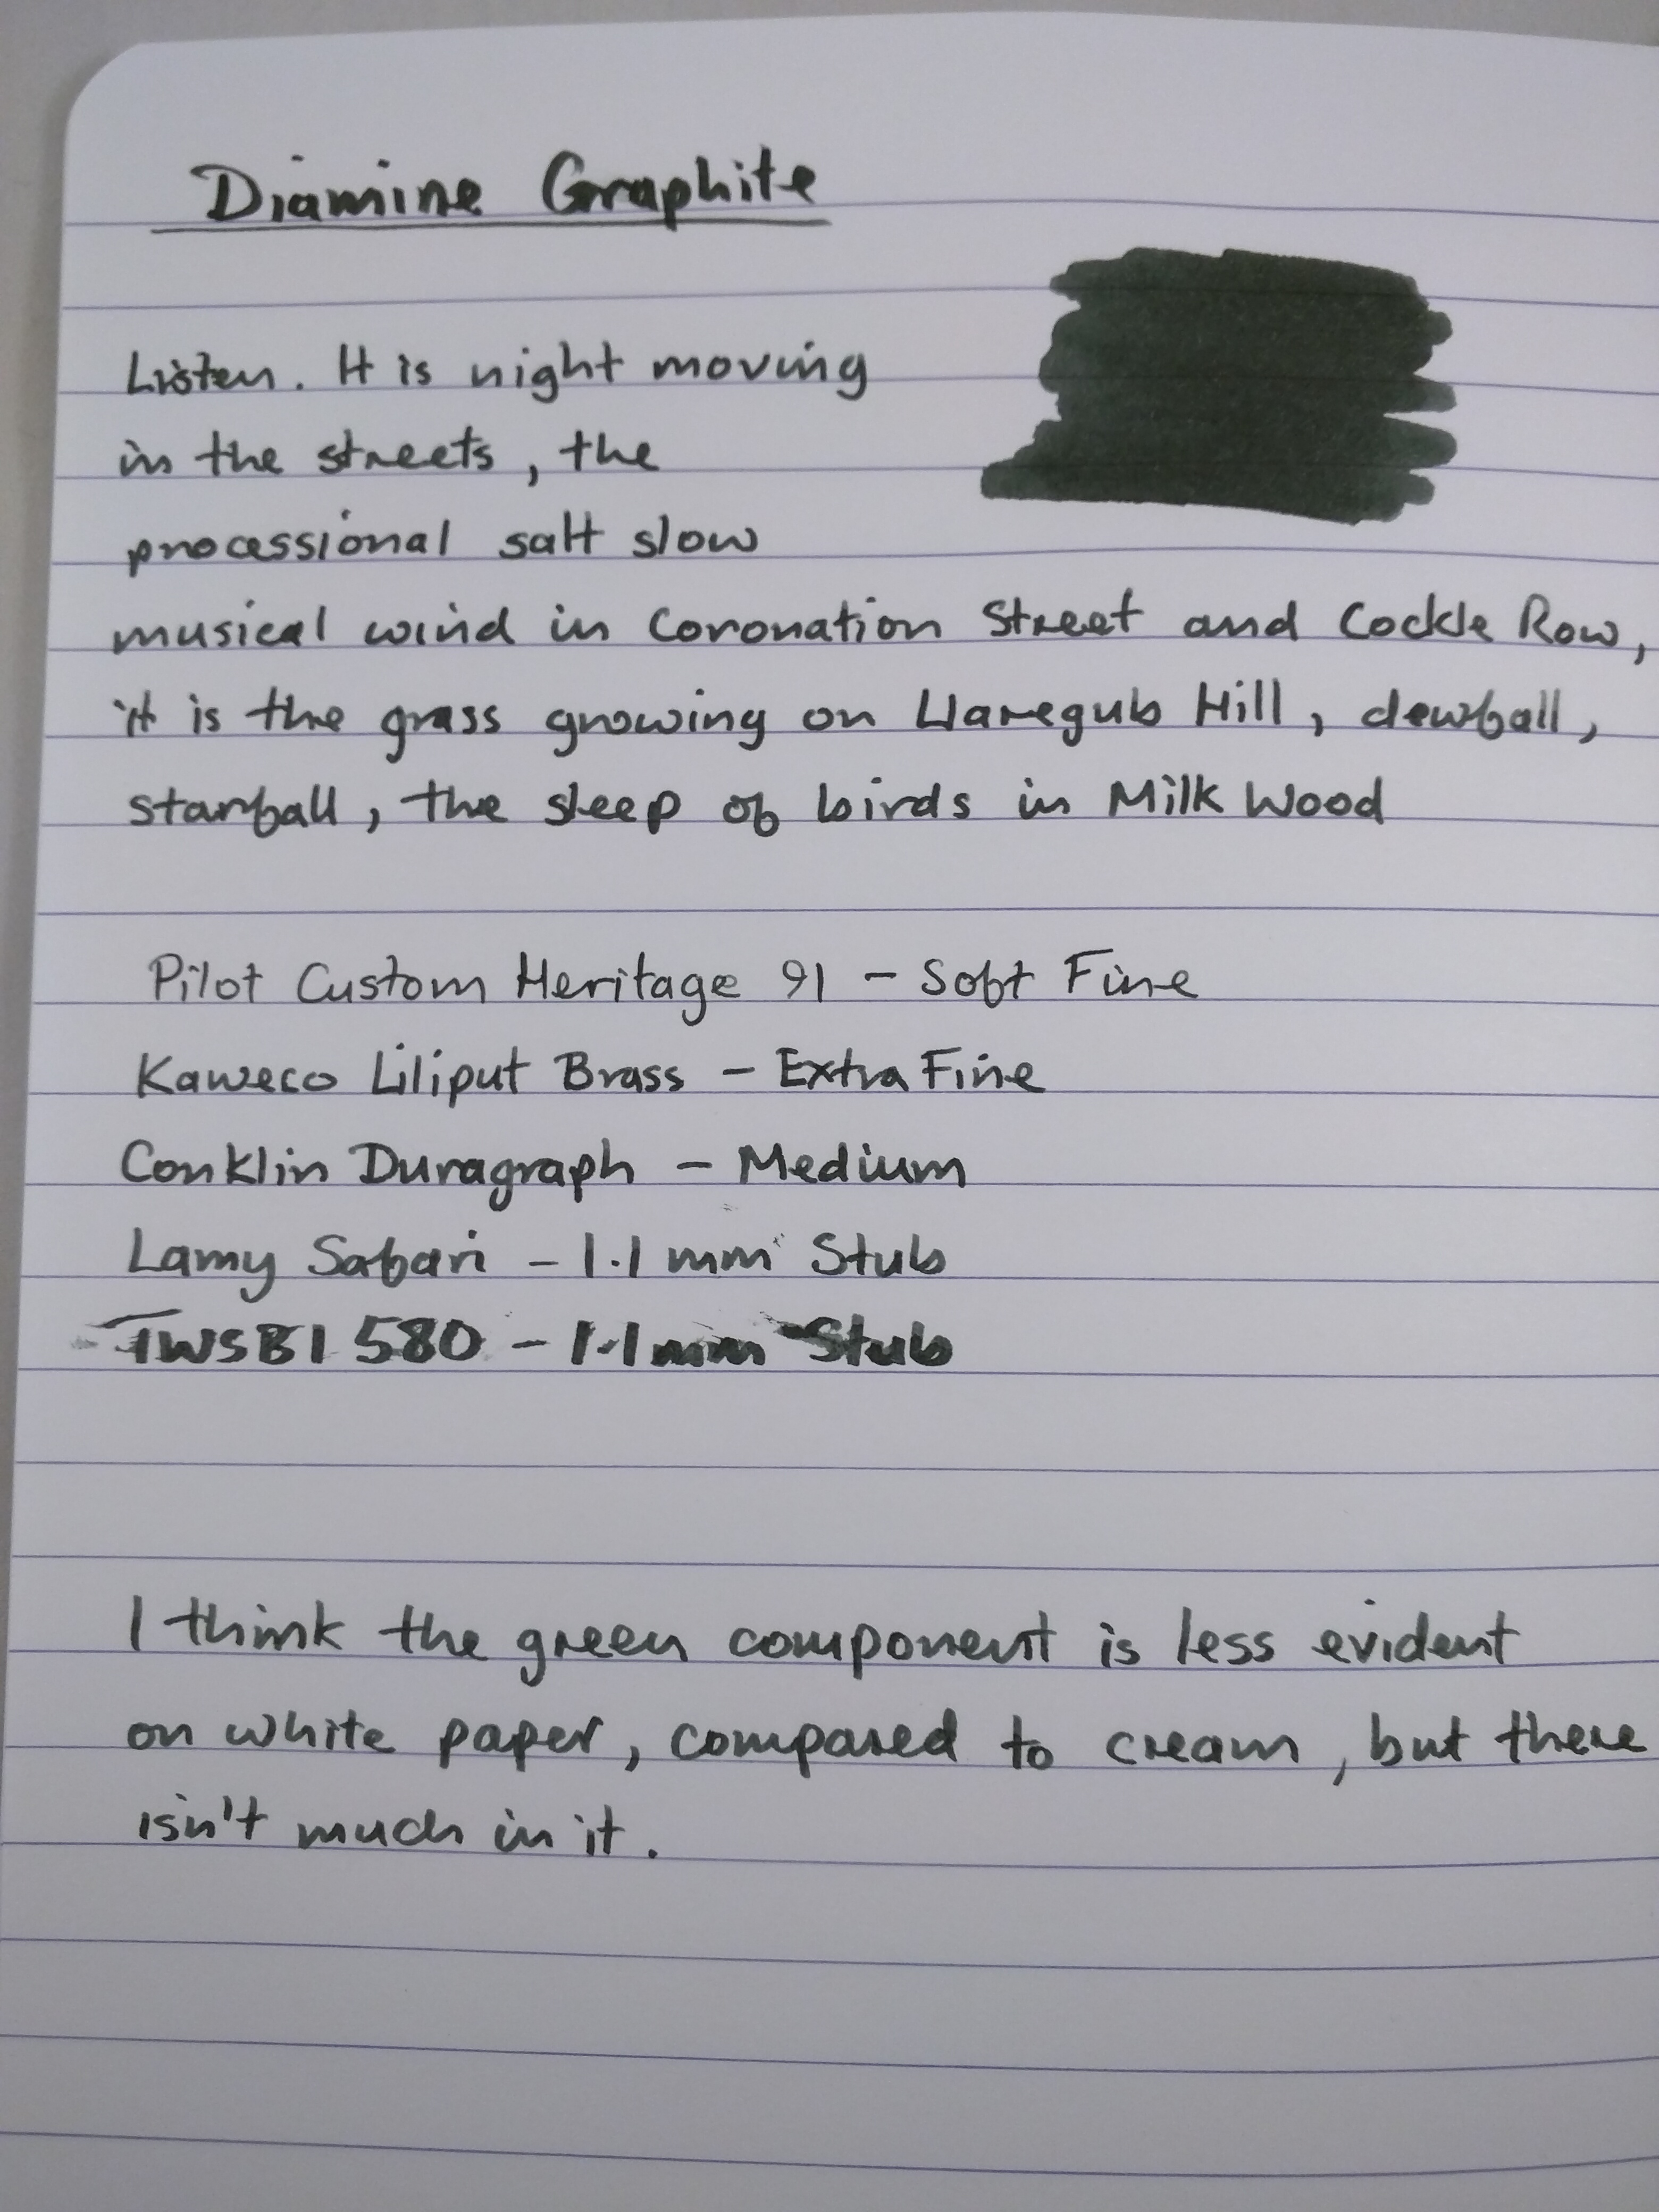 Diamine Graphite
Listen. It is night moving
in the streets, the
processional salt slow
musical wind in Coronation Street and Cockle Row,
it is the grass growing on Llaregub Hill, dewfall,
starfall, the sleep of birds in Milk Wood
Pilot Custom Heritage 91 – Soft Fine
Kaweco Liliput Brass – Extra Fine
Conklin Duragraph – Medium
Lamy Safari – 1.1 mm Stub
TWSBI 580 – 1.1 mm Stub
I think the green component is less evident
on white paper, compared to cream, but there
isn't much in it.